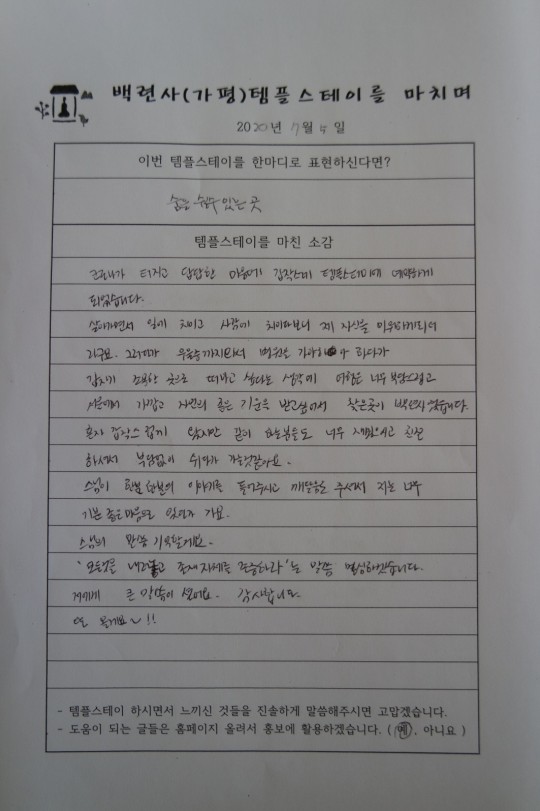 백련사(가평)템플스테이를 마치며
2020년 7월 4일
이번 템플스테이를 한마디로 표현하신다면?
숨을 쉴수 있는 곳
템플스테이를 마친 소감
코로나가 터지고 답답한 마음에 갑작스레 템플스테이에 예약하게
되었습니다.
살아가면서 일에 치이고 사람에 치이다보니 제 자신을 미워하게되어
가구요. 그러다가 우울증까지와서 병원을 가야하나 하다가
갑자기 조용한 곳으로 떠나고 싶다는 생각에 여행은 너무 부담스럽고
서울에서 가깝고 자연의 좋은 기운을 받고싶어서 찾은곳이 백련사 였습니다.
혼자 갑작스럽게 왔지만 같이 하는분들도 너무 재밌으시고 친절
하셔서 부담없이 쉬다가 가는것같아요.
스님이 한분 한분의 이야기를 들어주시고 깨달음을 주셔서 저는 너무
기쁜 좋은마음으로 있다가 가요.
스님의 말씀 기억할게요.
'모든것을 내려놓고 존재 자체를 존중하라'는 말씀 명심하겠습니다.
저에게 큰 말씀이 됐어요. 감사합니다.
또 올게요~!!
- 템플스테이 하시면서 느끼신 것들을 진솔하게 말씀해주시면 고맙겠습니다.
- 도움이 되는 글들은 홈페이지 올려서 홍보에 활용하겠습니다. (예, 아니요)